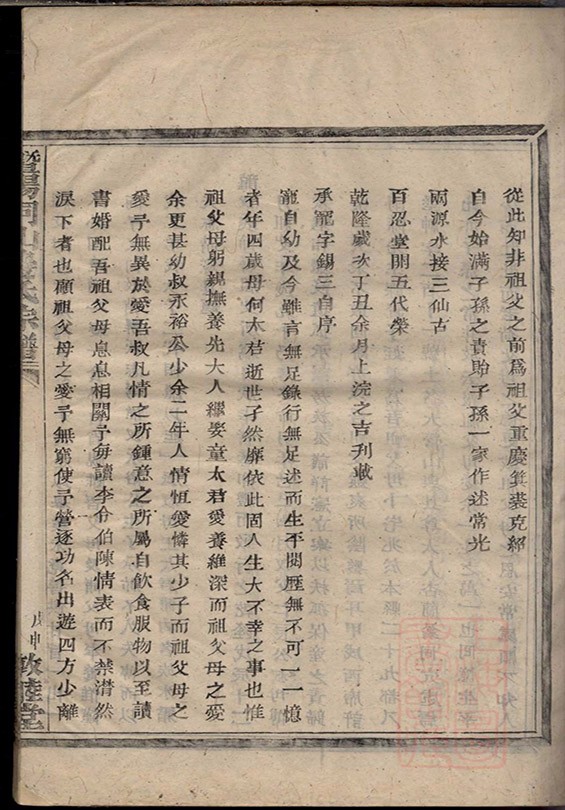 從此知非祖父之前為祖父重慶箕裘克紹
自今始滿子孫之責貽子孫一家作述常光
兩源水接三仙古
百忍堂開五代榮
乾隆歲次丁丑余月上浣之吉刊載
承寵字錫三自序
寵自幼及今雖言無足錄行無足述而生平閱歷無不可一一憶
者年四歲母何太君逝世孑然靡依此固人生大不幸之事也惟
祖父母躬親撫養光大人繼娶童太君愛養維深而祖父母之愛
余更甚幼叔永裕公少余二年人情恒愛憐其少子而祖父母之
愛予無異於愛吾叔凡情之所鍾意之所屬自飲食服物以至讀
書婚配吾祖父母息息相關予每讀李令伯陳情表而不禁潸然
淚下者也願祖父母之愛予無窮使予營逐功名出遊四方少離
暨陽同山 氏宗譜
戊申
敦睦堂